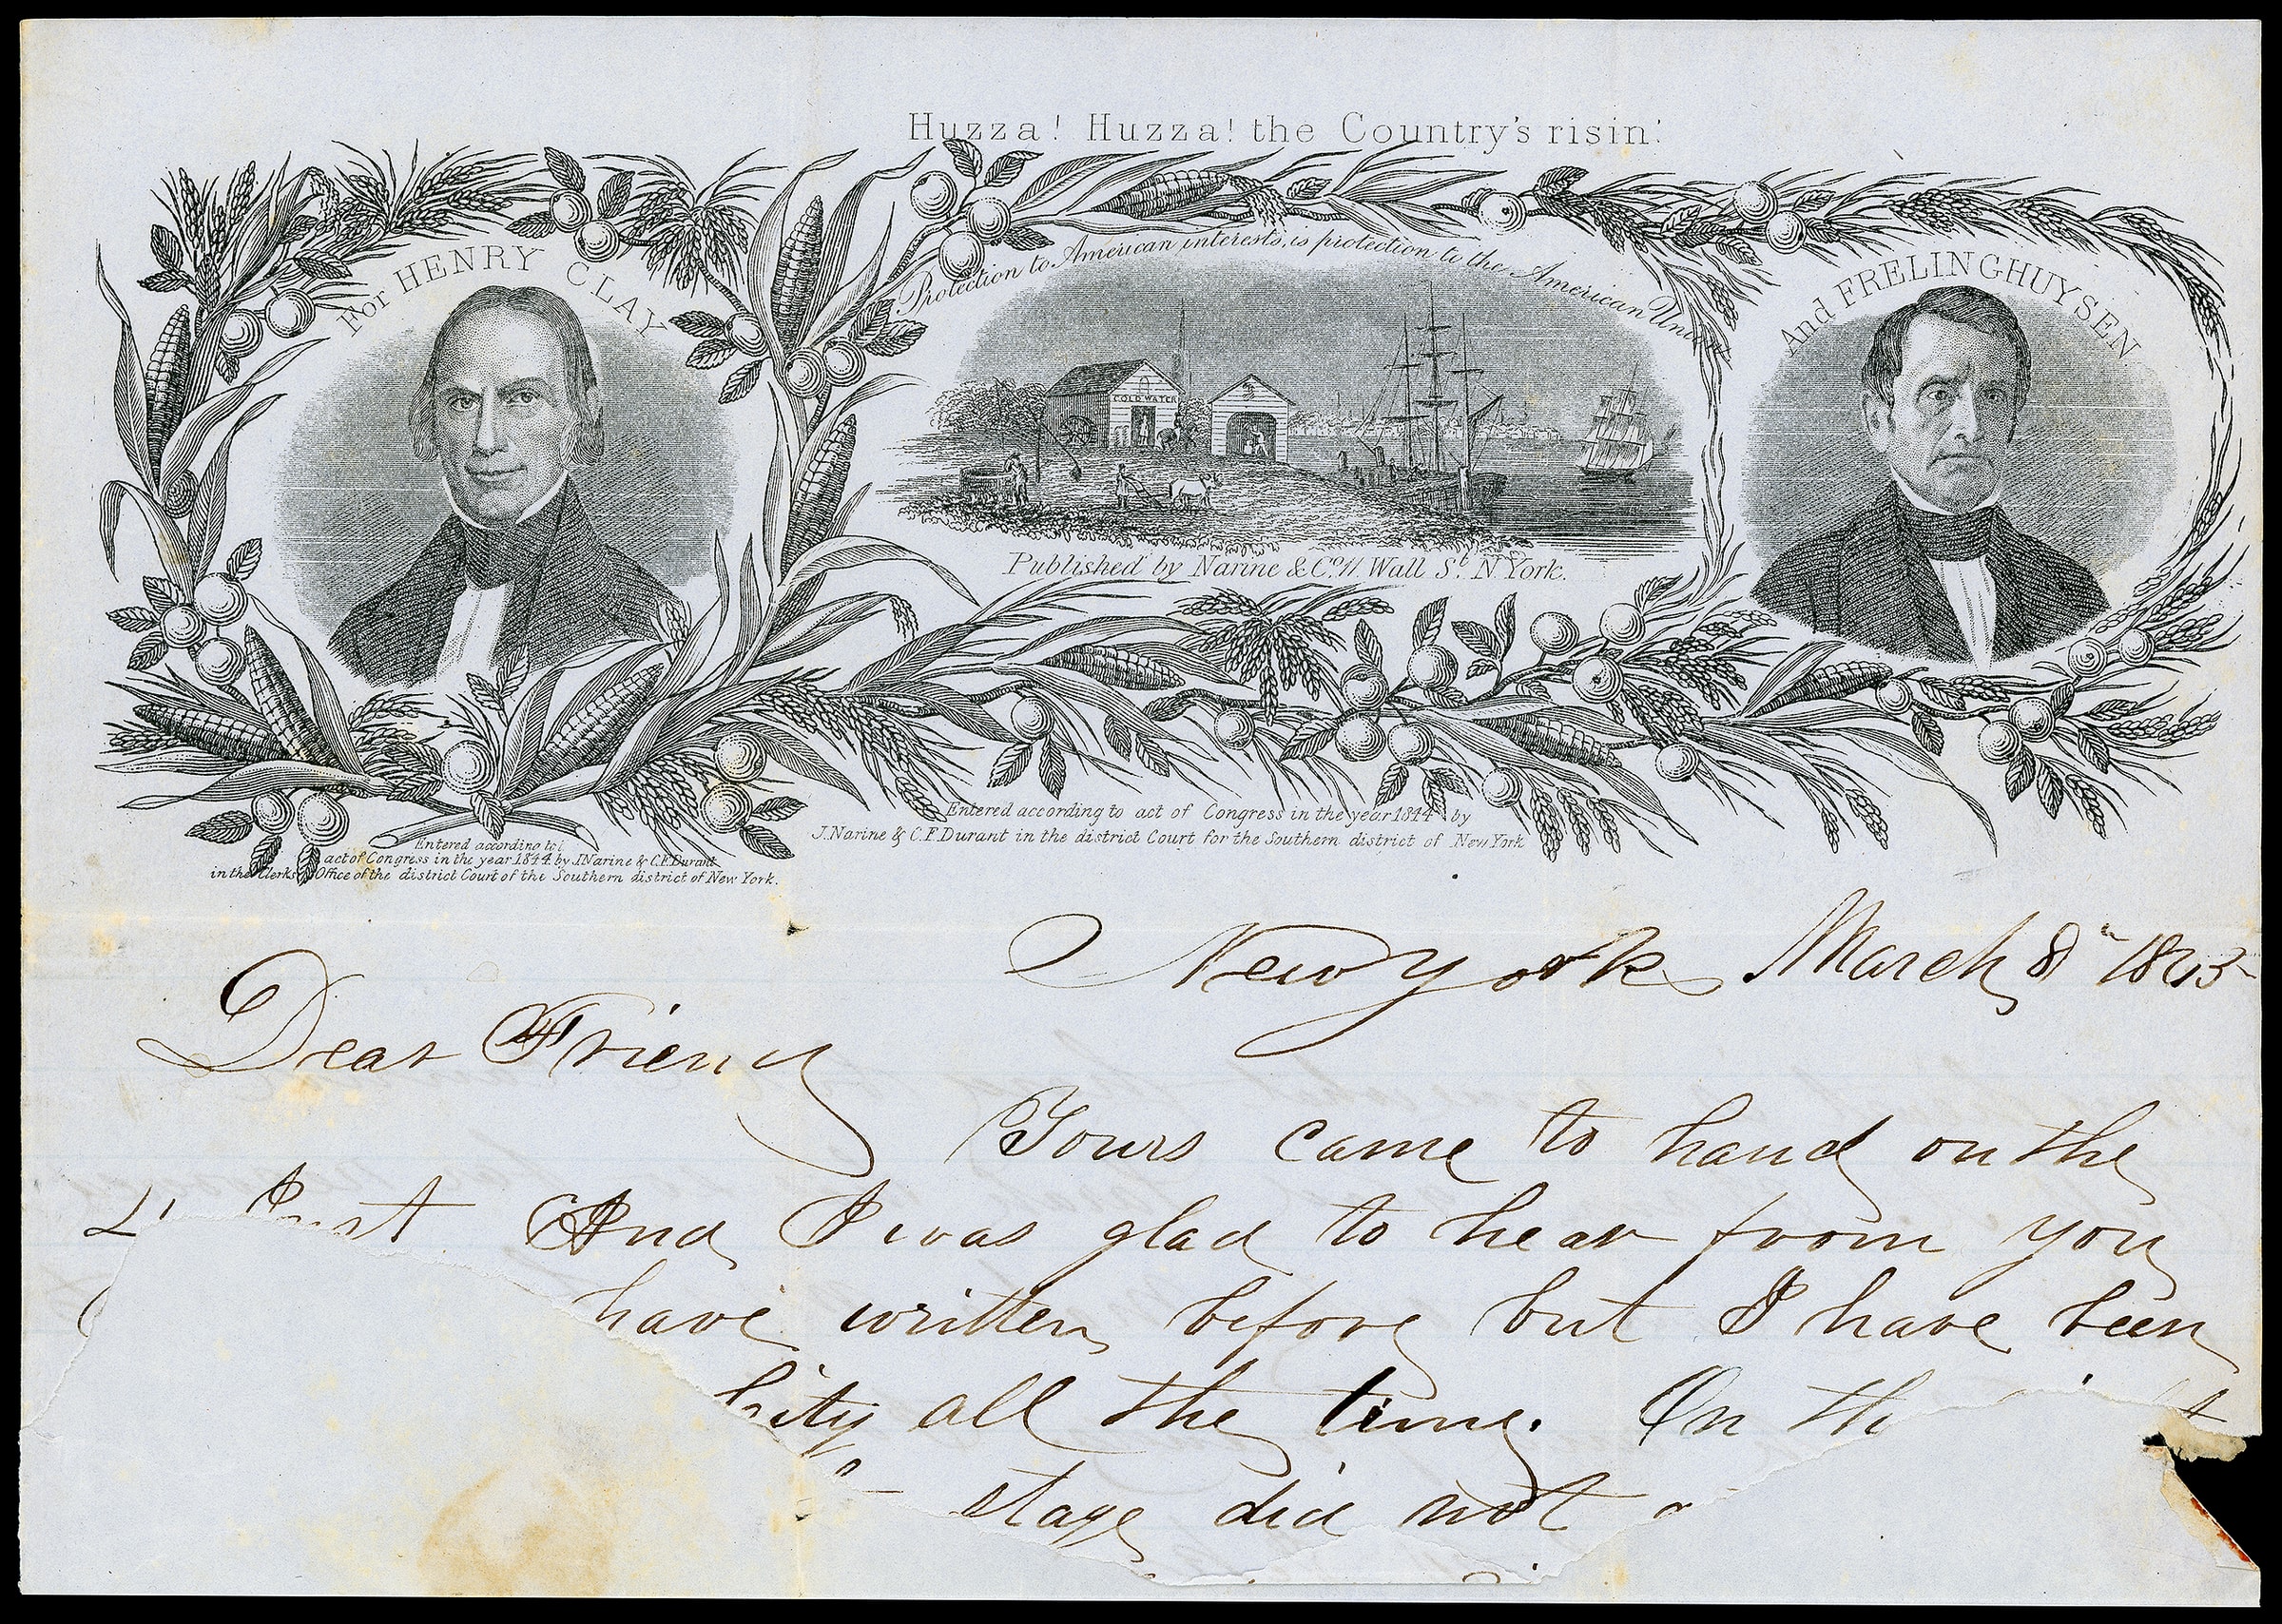 Huzza! Huzza! the Country's risin'
For HENRY CLAY
Protection to American interests, is protection to the American Union.
And FRELINGHUYSEN
COLD WATER
Published by Narine & Co. 11 Wall St. N. York.
Entered according to act of Congress in the year 1844 by
J. Narine & C. F. Durant in the district Court for the Southern district of New York
Entered according to
act of Congress in the year 1844 by J. Narine & C. F. Durant
in the Clerks Office of the district Court of the Southern district of New York.
New York March 8th
Dear Friend
Yours came to hand on the
Inst And I was glad to hear from you
have written before but I have been
all the time. On
stage did not